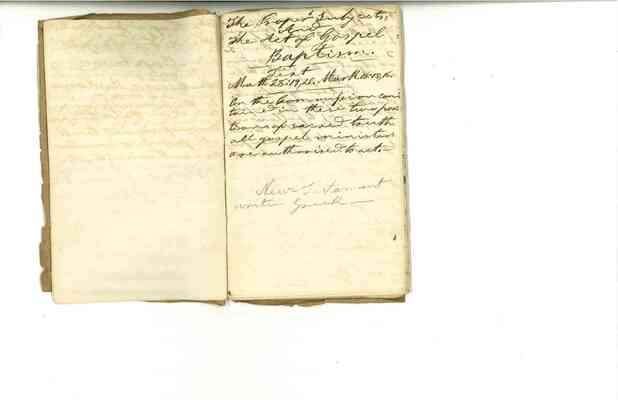 The Proper Subjects,
And
The Act of Gospel
Baptism.
Text
Math 28:19,20. Mark 16:15,16.
On the Commission con-
tained in these two por-
tions of sacred truth
all gospel ministers
are authorised to act.
New Testament
Greek